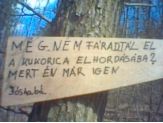 MÉG NEM FÁRADTÁL EL
A KUKORICA ELHORDÁSÁBA?
MERT ÉN MÁR IGEN